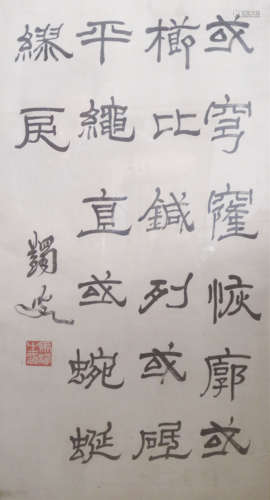 或穹窿恢廓或
櫛比鍼列或砥
平繩直或蜿蜒
繆戾
蠲叟